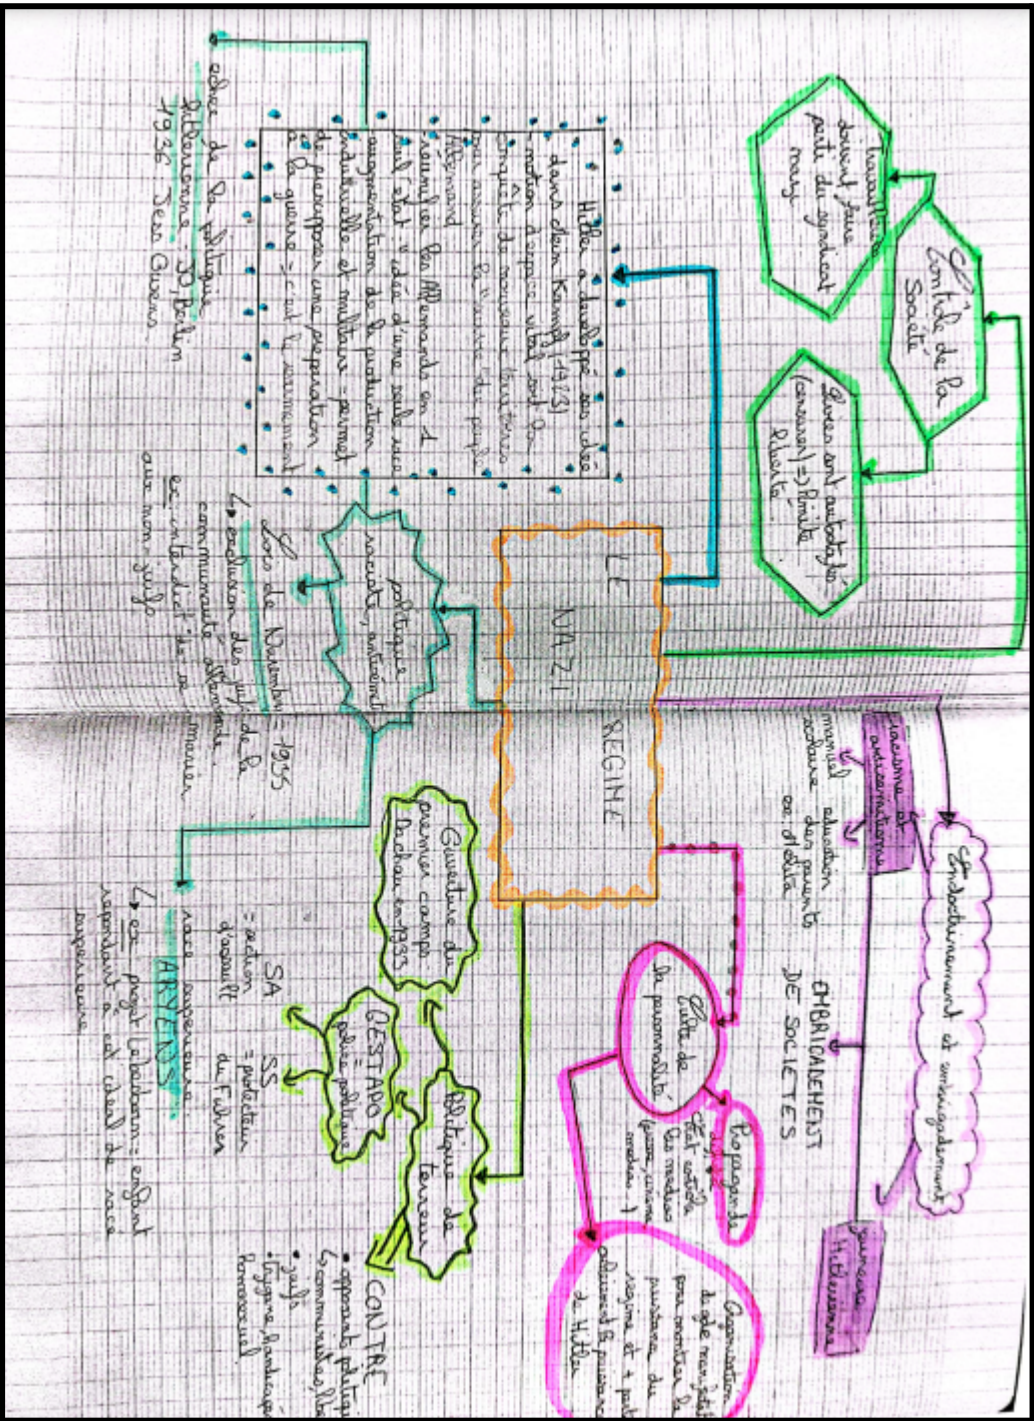 LE NAZI REGIME
Contrôle de la
Société
travailleurs
doivent faire
parti du syndicat
nazi
Livres sont autodafés
(censurer) => limite
liberté
Hitler a développé ses idée
dans Mein Kampf (1923)
-motion d'espace vital soit la
conquête de nouveaux territoires
pour assurer la "survie" du peuple
Allemand
-reunifier les Allemands en 1
seul état "idée d'une seule race
augmentation de la production
industrielle et militaire = permet
de presupposer une preparation
à la guerre = c'est le rearmement
echec de la politique
hitlérienne JO Berlin
1936 Jess Owens
politique
raciste, antisémite
Lois de Nuremberg = 1935
↳ exclusion des juifs de la
communauté allemande.
ex: interdict° de se marier
aux non-juifs
race superieure
ARYENS
↳ ex: projet Lebensborn = enfant
repondant à cet idéal de race
superieure
Endoctrinement et embrigadement
racisme et
antisemitisme
manuel
scolaire
education
des parents
EMBRIGADEMENT
DE SOCIETES
jeunesse
Hitlerienne
Culte de
la personnalité
Propagande
Etat contrôle
les medias
Organisation
pour montrer la
puissance du
regime et + part
la puissance
de Hitler
Politique de
terreur
Ouverture du
premier camps
Dachau en 1933
GESTAPO
=
police politique
SA
= section
d'assault
SS
= protecteur
du Führer
CONTRE
• opposants politiques
↳ communistes,
• juifs
• tzigane, handicapés
homosexuel